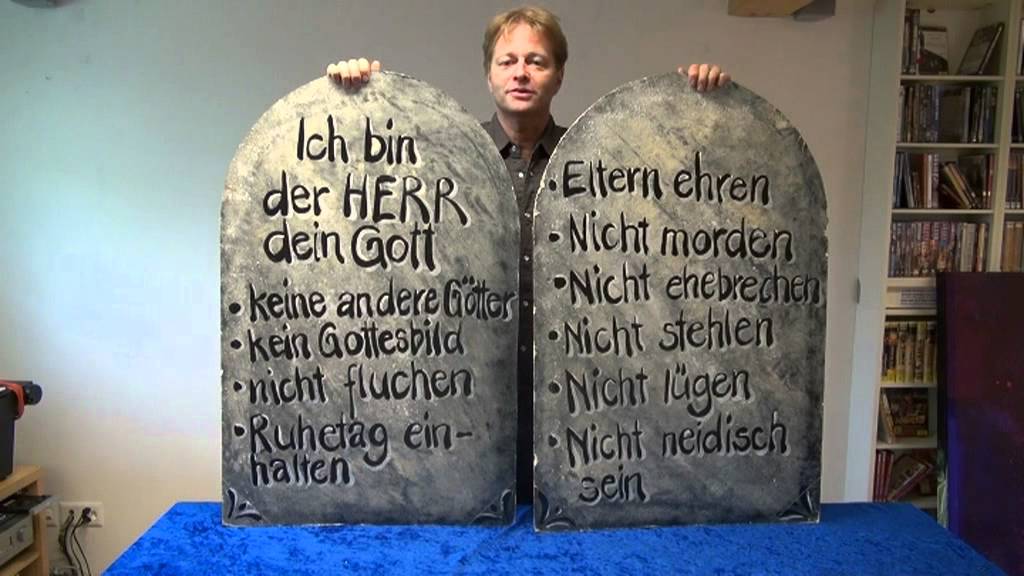 Ich bin
der HERR
dein Gott
• keine andere Götter
• kein Gottesbild
• nicht fluchen
• Ruhetag ein-
halten
• Eltern ehren
• Nicht morden
• Nicht ehebrechen
• Nicht stehlen
• Nicht lügen
• Nicht neidisch
sein